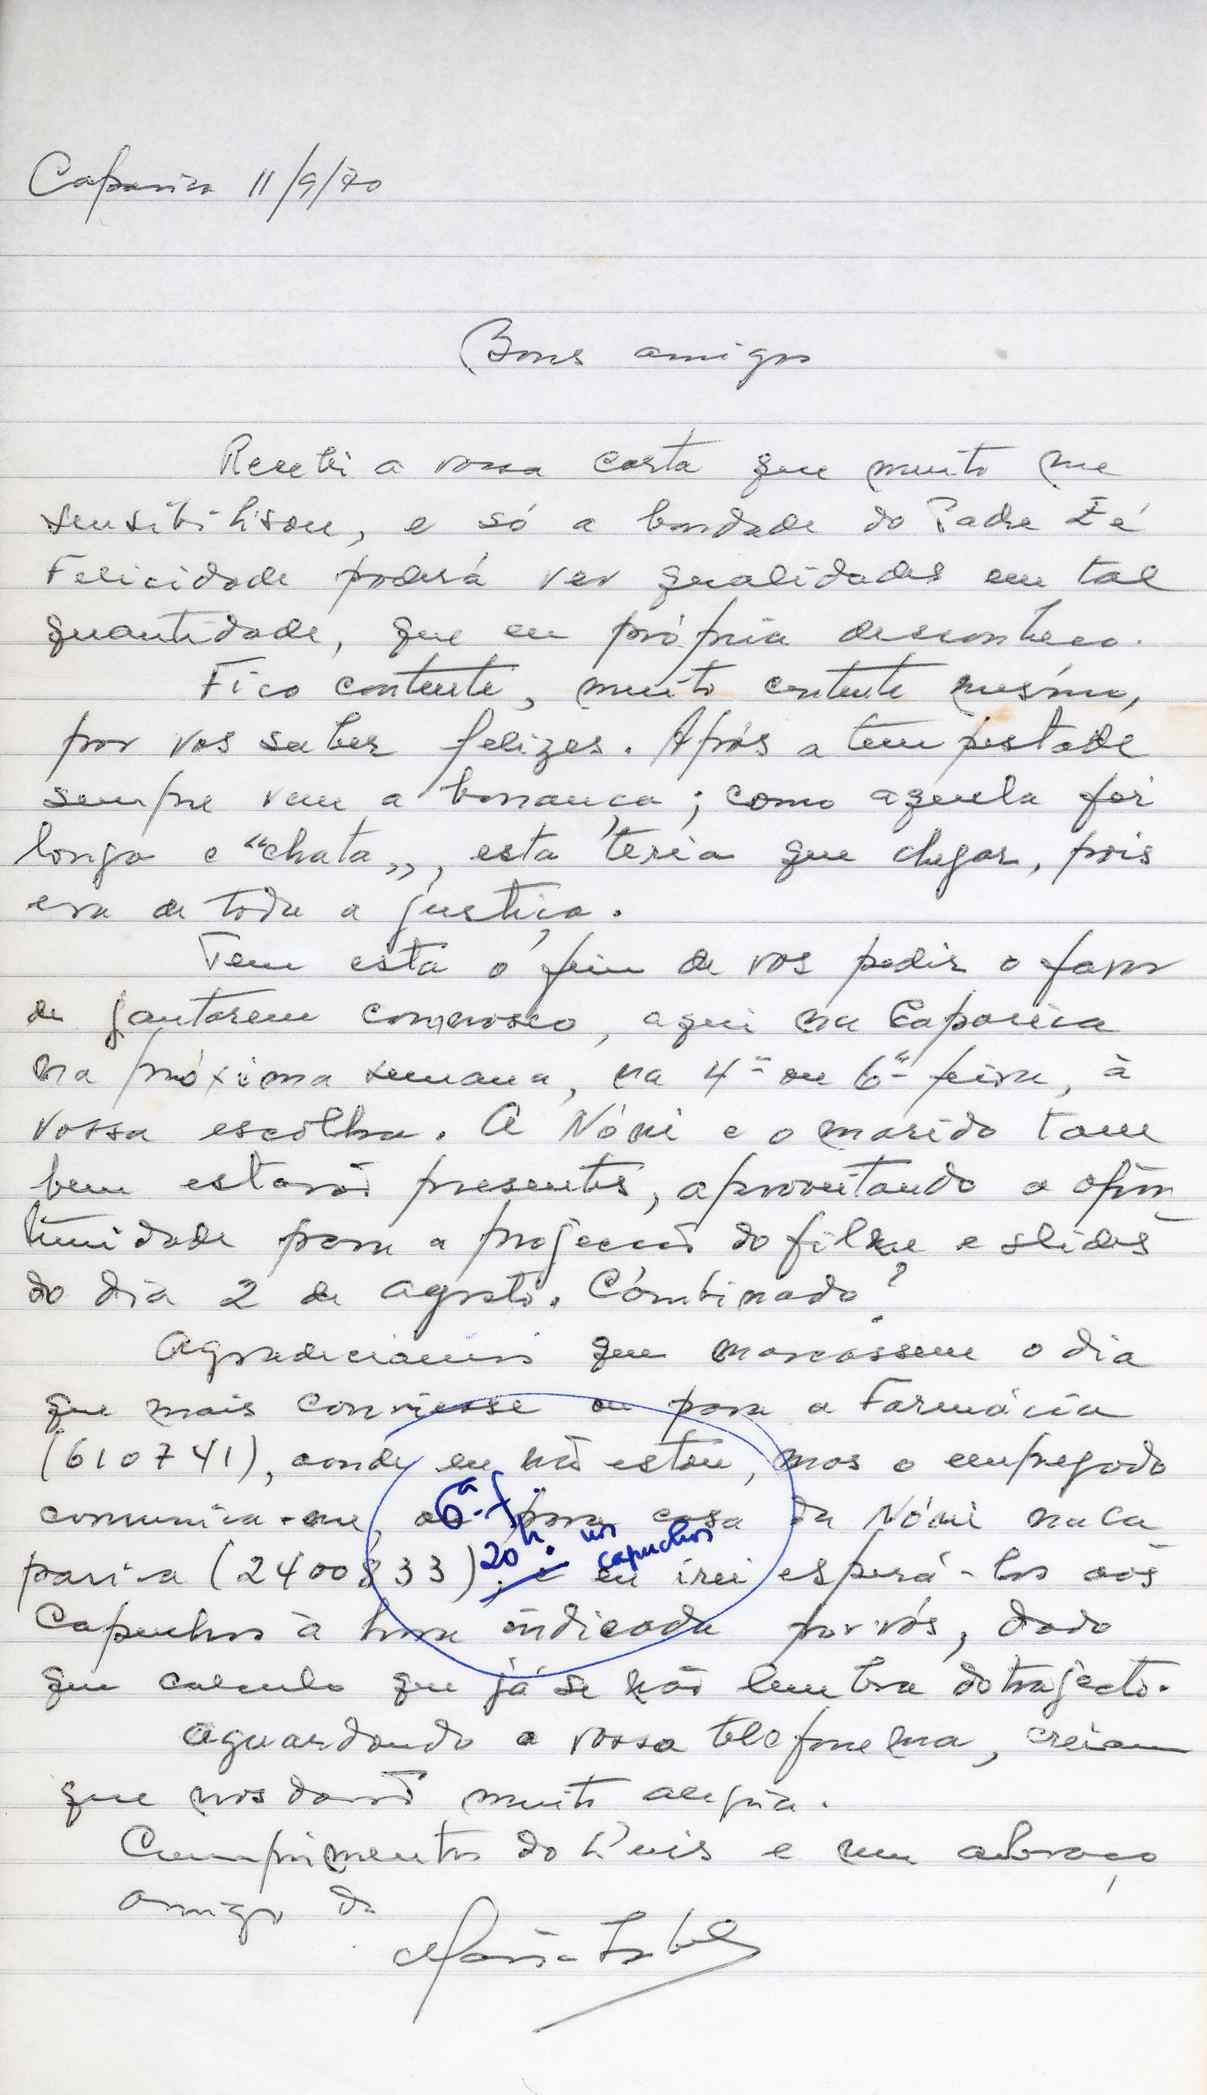 Caparica 11/9/70
Bons amigos
Recebi a vossa carta que muito me
sensibilisou, e só a bondade do Padre Zé é
Felicidade poderá ver qualidades em tal
quantidade, que eu própria desconheço.
Fico contente, muito contente mesmo,
por vos saber felizes. Após a tempestade
sempre vem a bonança; como aquela foi
longa e "chata", esta teria que chegar, pois
era de toda a justiça.
Tem esta o fim de vos pedir o favor
de jantarem connosco, aqui na Caparica
na próxima semana, na 4ª ou 6ª feira, à
vossa escôlha. A Nómi e o marido tam
bem estarão presentes, aproveitando a opor
tunidade para a projecção do filme e slides
do dia 2 de agosto. Combinado?
Agradeciamos que marcassem o dia
que mais conviesse ou para a Farmácia
(610741), aonde eu não estou, mas o empregado
comunica-me, ou para casa da Nómi na Ca
parica (2400833), e eu irei esperá-los aos
Capuchos à hora indicada por vós, dado
que calculo que já se não lembra do trajecto.
Aguardando a vossa telefonema, creiam
que nos darão muita alegria.
Cumprimentos do Luis e um abraço
amigo da
Maria Isabel
6ª f.
20 h. nos
capuchos